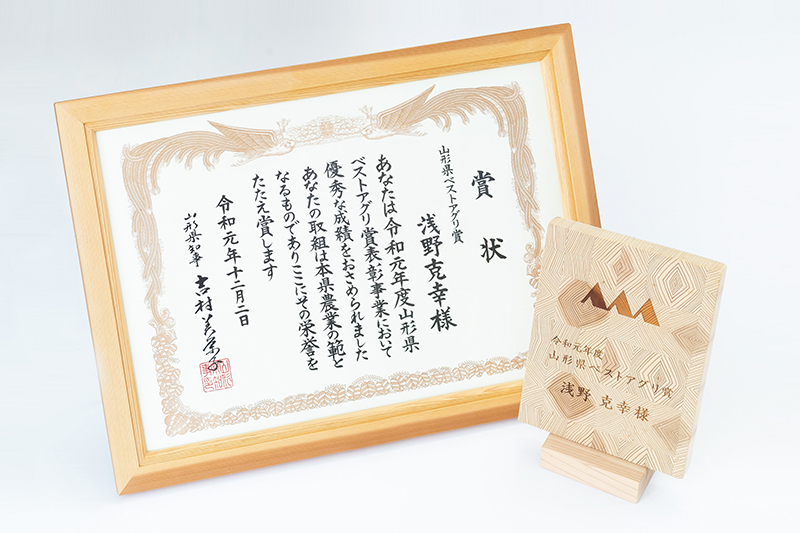 賞状
山形県ベストアグリ賞
浅野克幸様
あなたは令和元年度山形県
ベストアグリ賞表彰事業において
優秀な成績をおさめられました
あなたの取組は本県農業の範と
なるものでありここにその栄誉を
たたえ賞します
令和元年十二月二日
山形県知事 吉村美栄子
令和元年度
山形県ベストアグリ賞
浅野 克幸様